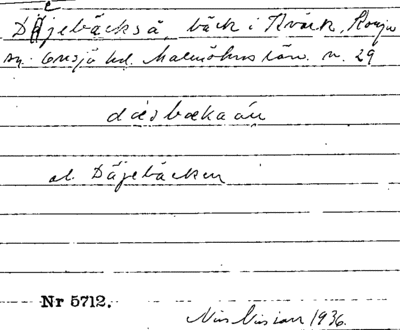 Däjebäckså, bäck i Kvärk, Konga
sn. Onsjö hd. Malmöhus län. n. 29
däsbækaån
el. Däjebäcken
Nr 5712.
1936.